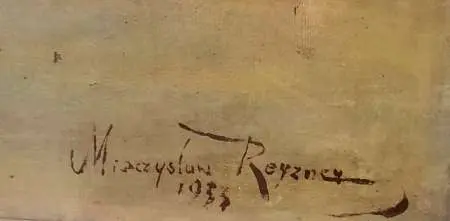 Mieczysław Reyzner
1933